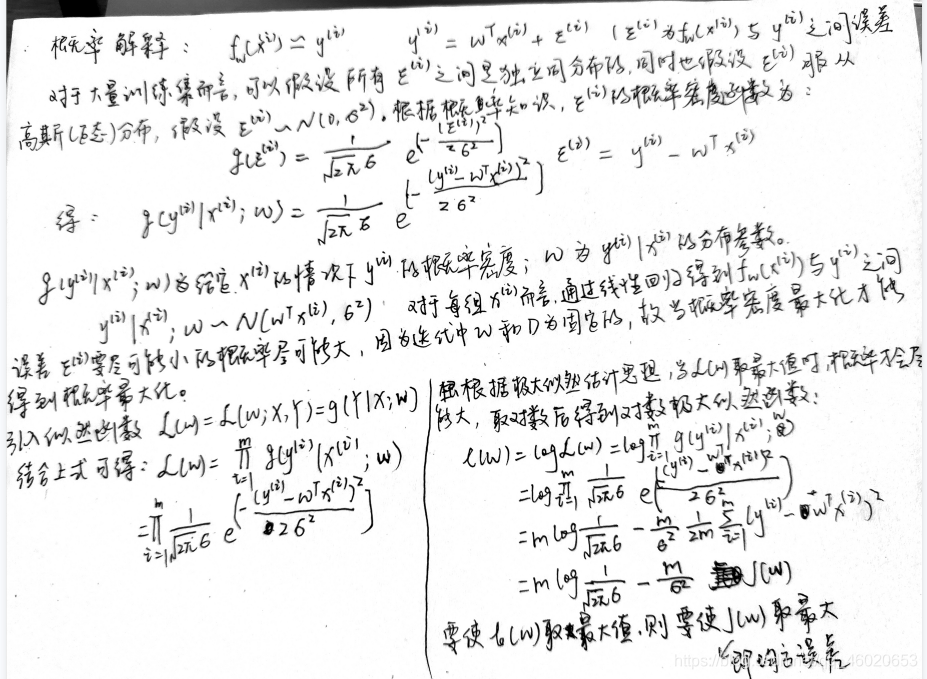 概率解释： f_w(x^(i)) ≃ y^(i)　　y^(i) = w^T x^(i) + ε^(i) （ε^(i)为f_w(x^(i))与y^(i)之间误差
对于大量训练集而言，可以假设所有ε^(i)之间是独立同分布的，同时也假设ε^(i)服从
高斯(正态)分布，假设 ε^(i) ~ N(0, 6²)。根据概率知识，ε^(i)的概率密度函数为：
g(ε^(i)) = 1/(√2π 6) e^[-(ε^(i))²/26²]　　ε^(i) = y^(i) - w^T x^(i)
得： g(y^(i)|x^(i); w) = 1/(√2π 6) e^[-(y^(i) - w^T x^(i))²/26²]
g(y^(i)|x^(i); w)为给定x^(i)的情况下y^(i)的概率密度；w为y^(i)|x^(i)的分布参数。
y^(i)|x^(i); w ~ N(w^T x^(i), 6²)　对于每组x^(i)而言，通过线性回归得到f_w(x^(i))与y^(i)之间
误差ε^(i)要尽可能小的概率尽可能大，因为迭代中w和D为固定的，故当概率密度最大化才能
得到概率最大化。
引入似然函数 L(w) = L(w; X, Y) = g(Y|X; w)
结合上式可得： L(w) = ∏_{i=1}^{m} g(y^(i)|x^(i); w)
= ∏_{i=1}^{m} 1/(√2π 6) e^[-(y^(i) - w^T x^(i))²/26²]
根据极大似然估计思想，当L(w)取最大值时，概率才会尽
能大，取对数后得到对数极大似然函数：
ℓ(w) = log L(w) = log ∏_{i=1}^{m} g(y^(i)|x^(i); w)
= log ∏_{i=1}^{m} 1/(√2π 6) e^[-(y^(i) - w^T x^(i))²/26²]
= m log 1/(√2π 6) - m/6² 1/2m ∑_{i=1}^{m} (y^(i) - w^T x^(i))²
= m log 1/(√2π 6) - m/6² J(w)
要使ℓ(w)取最大值，则要使J(w)取最大
即均方误差